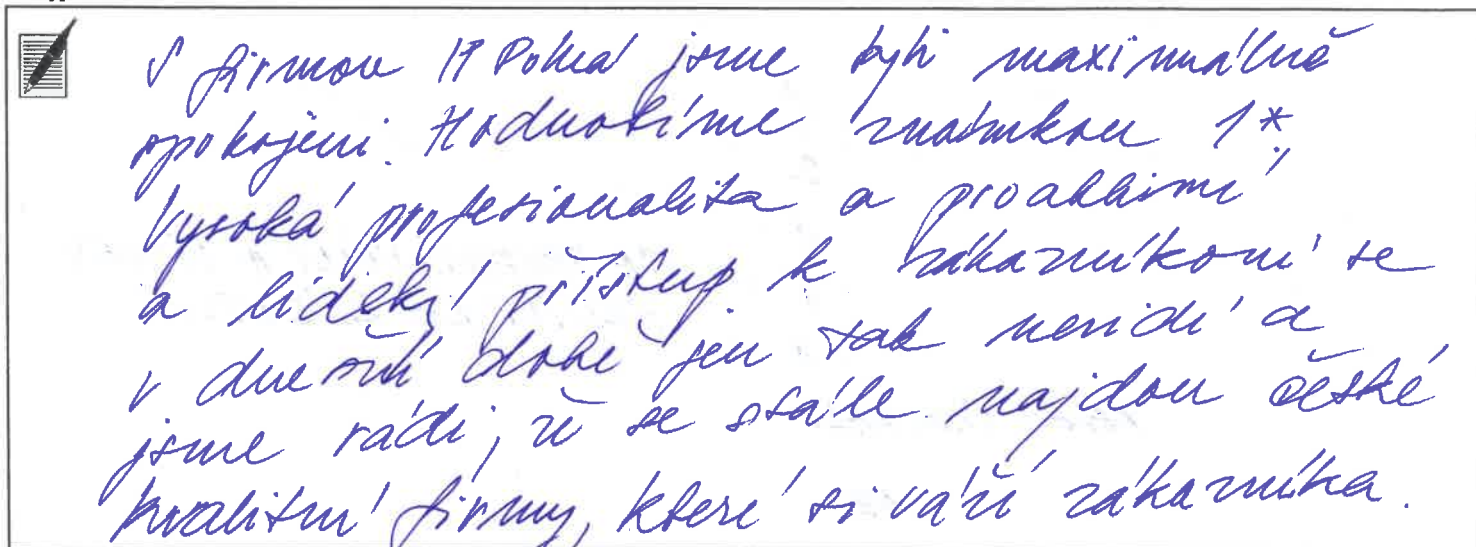 S firmou jsme byli maximálně
spokojeni. Hodnotíme známkou 1*.
Vysoká profesionalita a proaktivní
a lidský přístup k zákazníkovi se
v dnešní době jen tak nevidí a
jsme rádi, že se stále najdou české
kvalitní firmy, které si váží zákazníka.